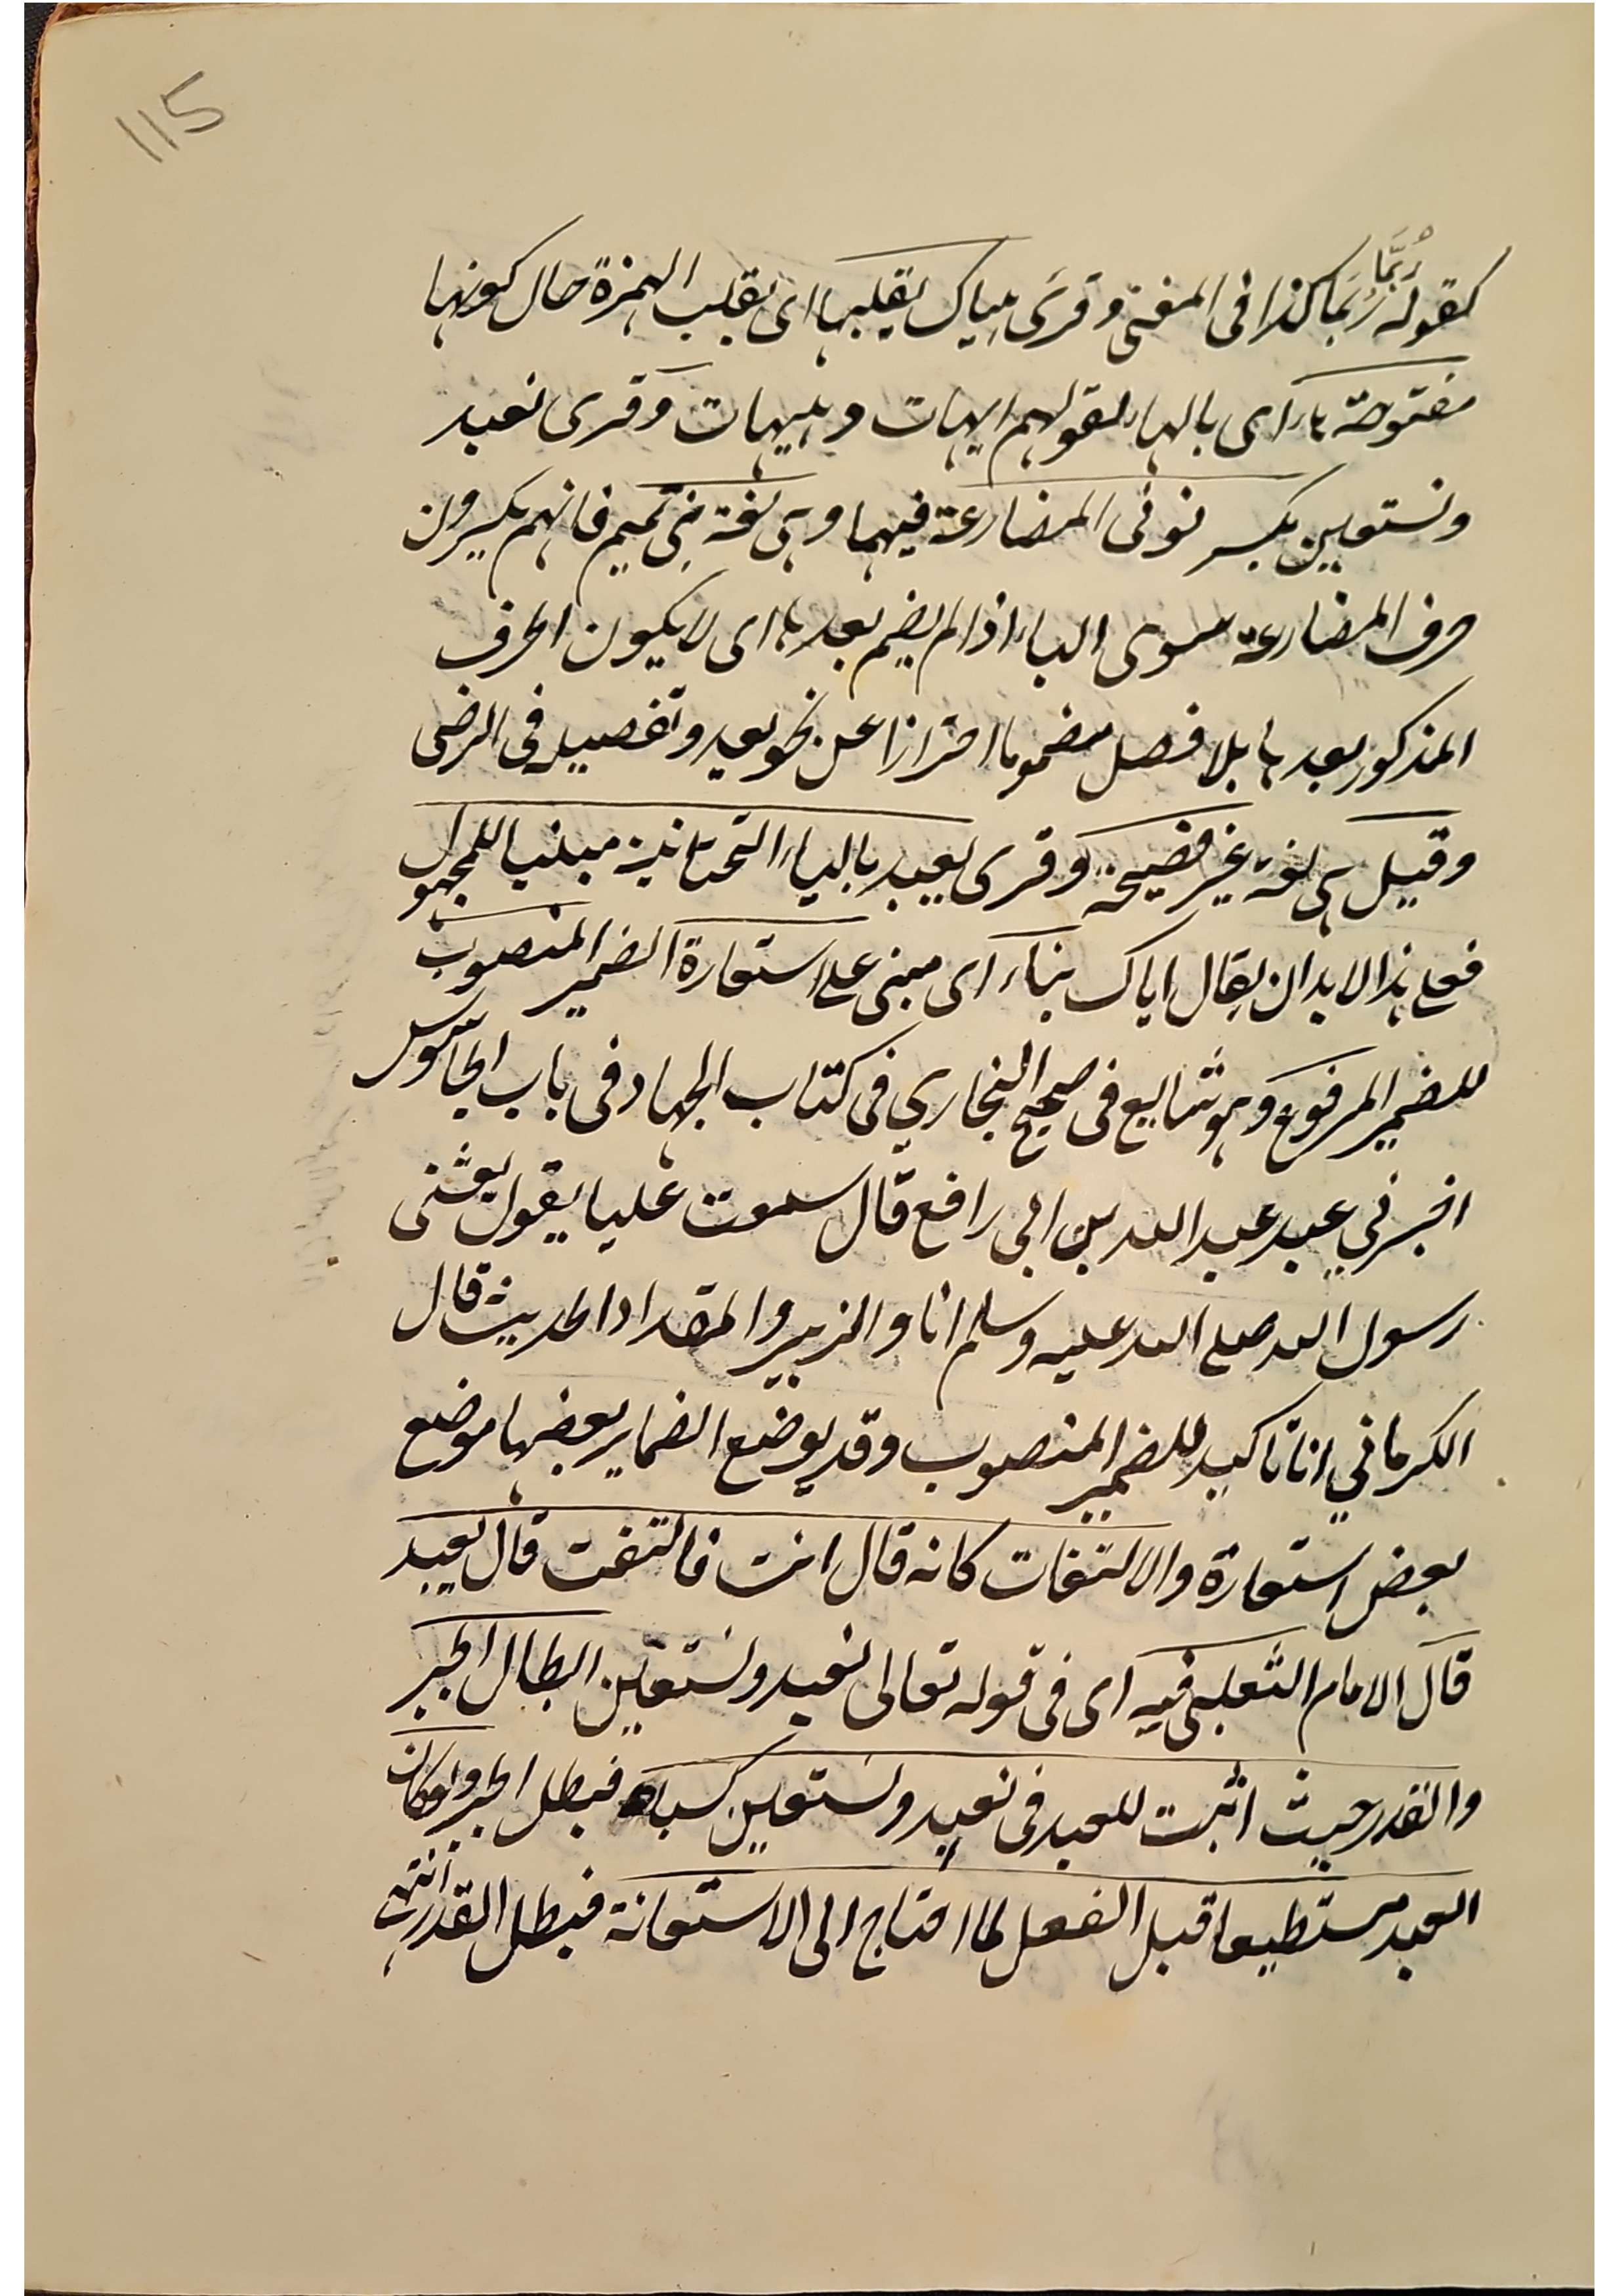 115
رُبَّمَا
كقوله رُبَمَا كذا فى المغنى وقرئ هياك بقلبها اى بقلب الهمزة حال كونها
مفتوحة هاء اى بالهاء كقولهم ايهات وهيهات وقرى نعبد
ونستعين بكسر نونى المضارعة فيهما وهى لغة بنى تميم فانهم يكسرون
حرف المضارعة سوى الياء اذا لم يضم بعدها اى لا يكون الحرف
المذكور بعدها بلا فصل مضموما احترازا عن نحو يعيد وتفصيله فى الرضى
وقيل هى لغة غير فصيحة وقرى يعبد بالياء التحتانية مبنيا للمجهول
فعلى هذا لابد ان يقال اياك بناء اى مبنى على استعارة الضمير المنصوب
للضمير المرفوع وهو شايع فى صحيح البخاري فى كتاب الجهاد فى باب الجاسوس
اخبرني عبد عبد الله بن ابي رافع قال سمعت عليا يقول بعثنى
رسول الله صلى الله عليه وسلم انا والزبير والمقداد الحديث قال
الكرماني انا تاكيد للضمير المنصوب وقد يوضع الضماير بعضها موضع
بعض استعارة والالتفات كانه قال انت فالتفت قال يعبد
قال الامام الثعلبى فيه اى فى قوله تعالى نعبد ونستعين ابطال الجبر
والقدر حيث اثبت للعبد فى نعبد ونستعين كسبا فبطل الجبر ولو كان
العبد مستطيعا قبل الفعل لما احتاج الى الاستعانة فبطل القدر انتهى